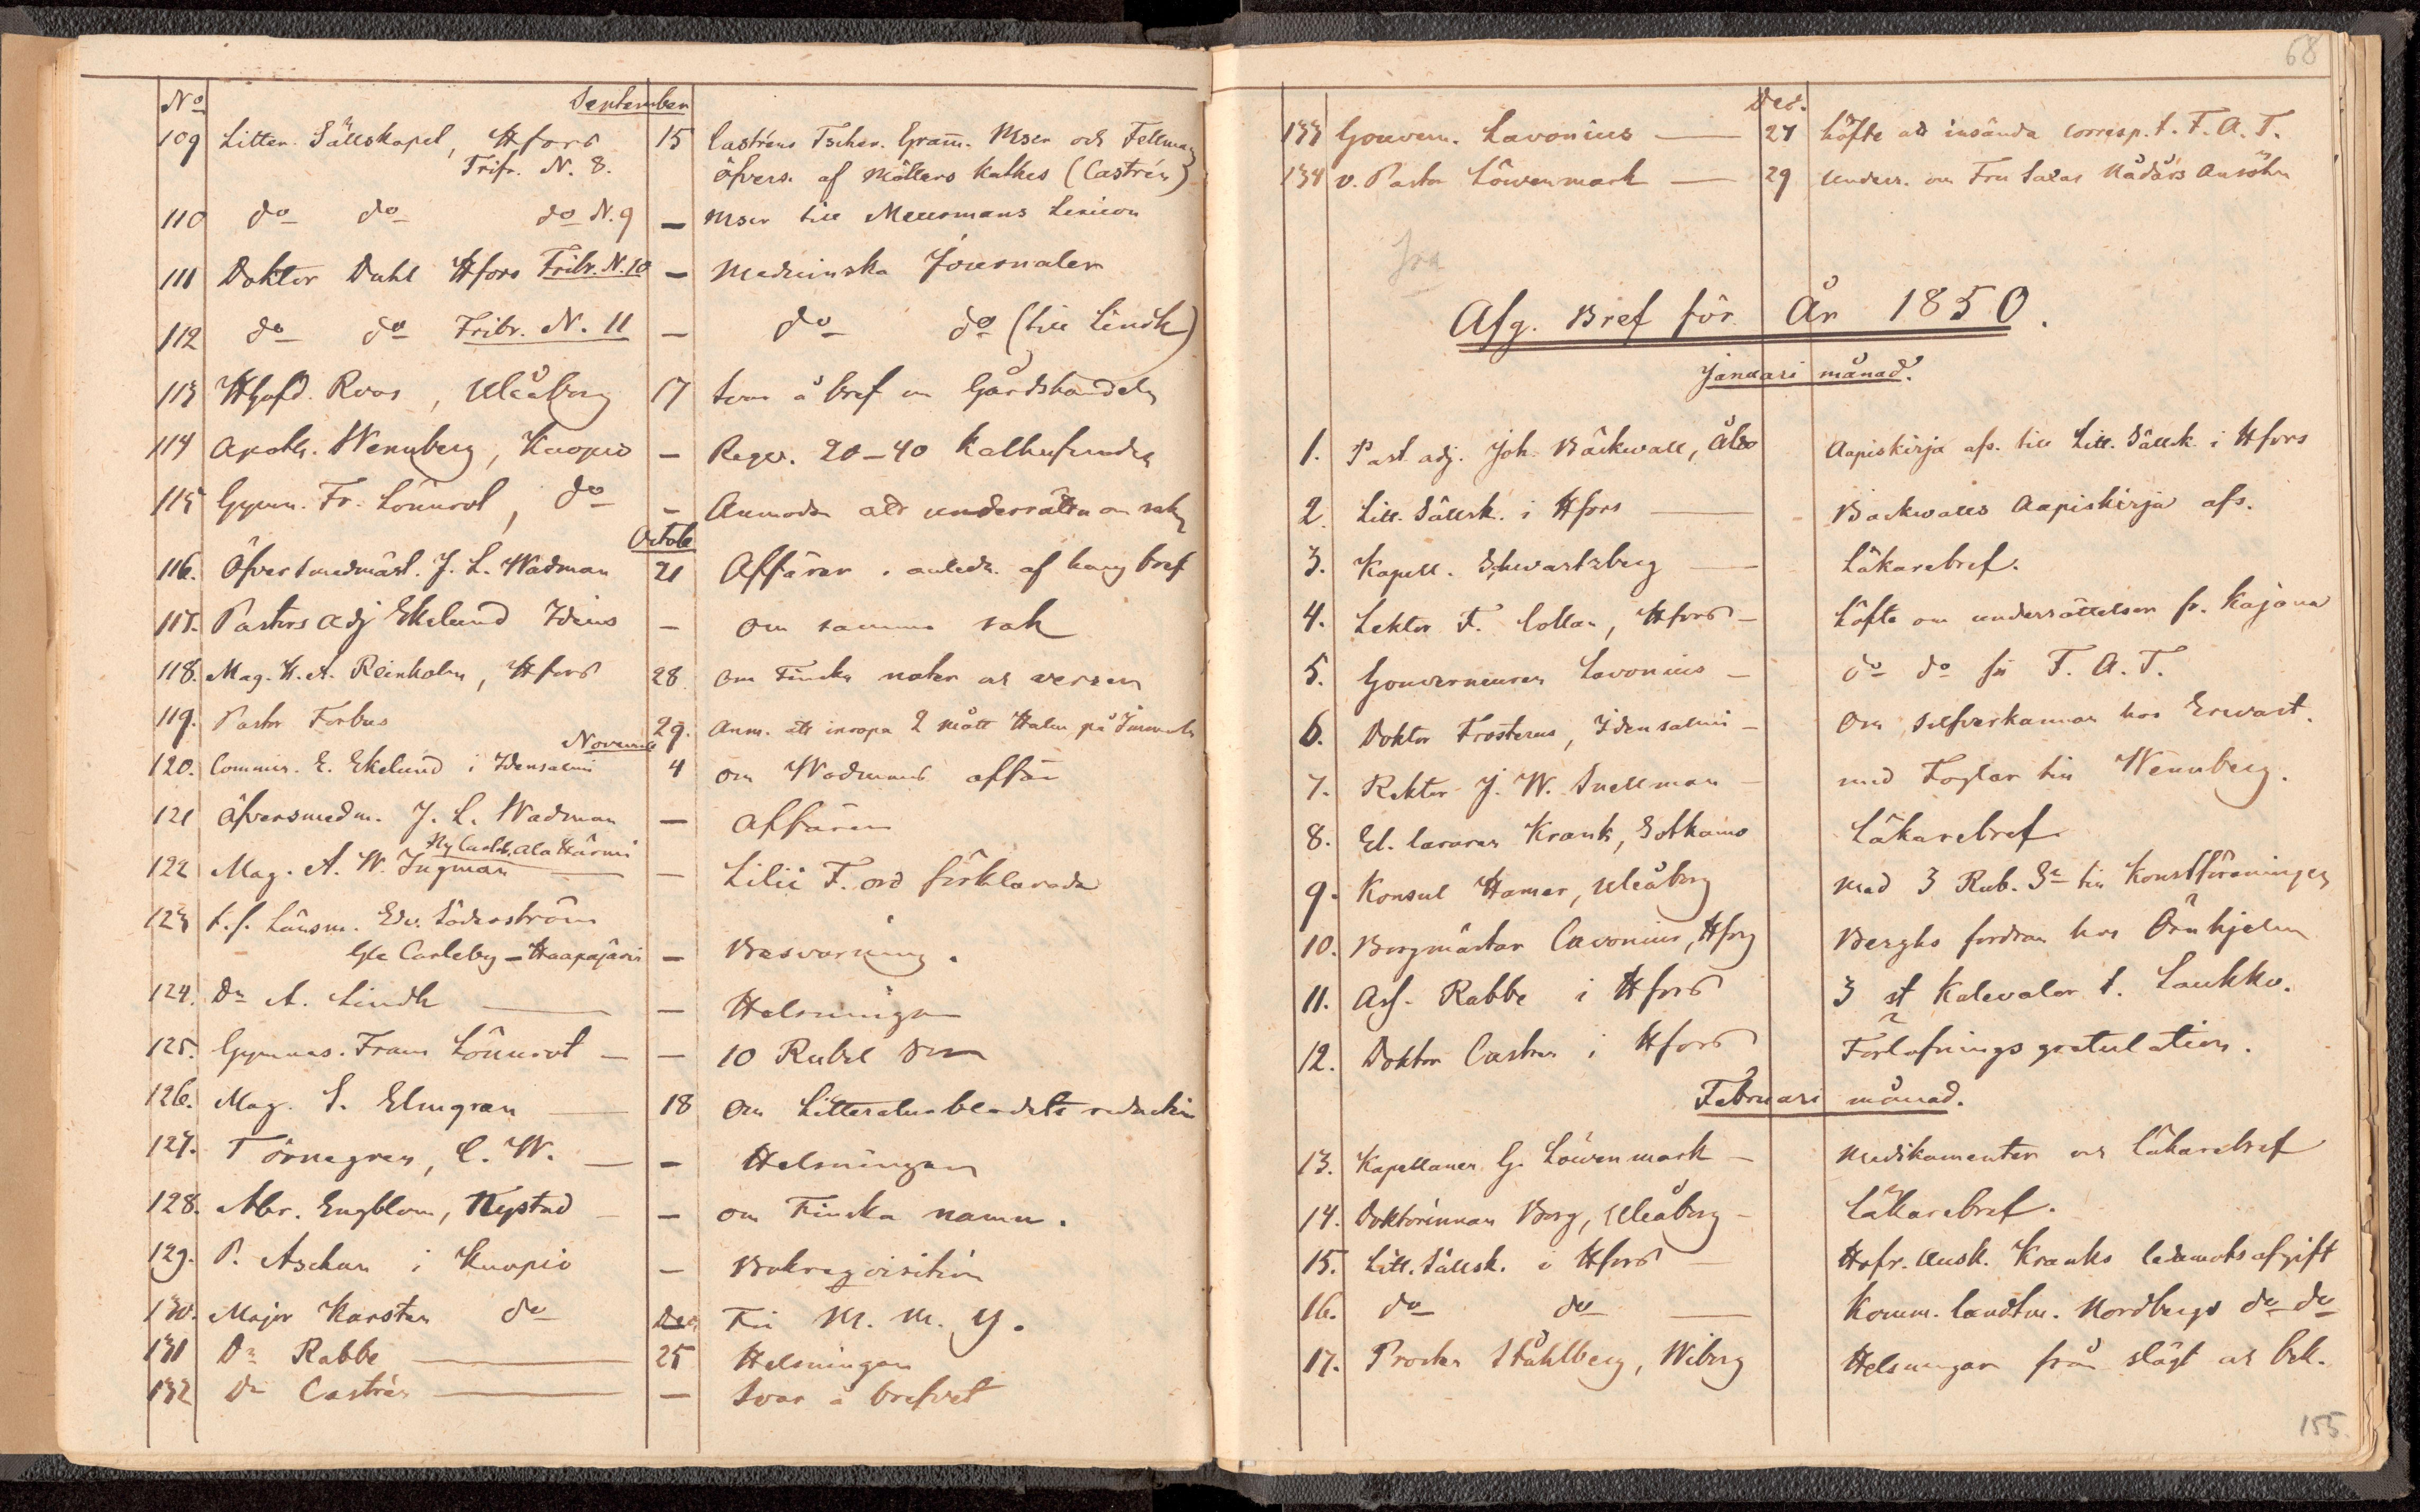 No September
109 Litter. Sällskapet, Hfors 15 Castréns Tscher. Gram̄. Mscr och Fellmans
Fribr. N. 8. öfvers. af Möllers Kathes (Castrén)
110 do do do N. 9 — Mscr till Meurmans Lexicon
111 Doktor Dahl Hfors Fribr. N. 10 — Medicinska Journaler
112 do do Fribr. N. 11 — do do (till Lindh)
113 Hofd. Roos, Uleåborg 17 Svar å bref om Gårdshandeln
114 Apoth. Wennberg, Kuopio — Reqv. 20–40
115 Gymn. Fr. Lönnrot, do — Anmodan att underrätta om
Octob
116. Öfversmedmäst. J. L. Wadman 21 Affären i anledn. af hans bref
117. Pastors Adj Ekelund Idens — Om samma sak
118. Mag. H. A. Reinholm, Hfors 28 Om Finska noter och verser
119. Pastor Forbus 29. Anm. att inropa 2 mått Halm på
Novemb
120. Commis. E. Ekelund i Idensalmi 4 om Wadmans affär
121 Öfversmedm. J. L. Wadman — Affären
Ny Carleb. Ala Härmä
122 Mag. A. W. Ingman — Lilii F. ord förklarade
123 t. f. Länsm. Edv. Söderström
Gle Carleby – Haapajärvi — Besvarning.
124. Dr A. Lindh — Helsningar
125. Gymnas. Frans Lönnrot — — 10 Rubel
126. Mag. S. Elmgren — 18 Om Litteraturbladets redaktion
127. Törnegren, C. W. — — Helsningar
128. Abr. Engblom, Nystad — — om Finska namn.
129. P. Aschan i Kuopio — Bokreqvisition
130. Major Karsten do Dec Fii M. M. Y.
131 Dr Rabbe — 25 Helsningar
132 Dr Castrén — — Svar å brefvet
68
Dec.
133 Gouvern. Lavonius — 27 Löfte att insända corresp. t. F. A. T.
134 v. Pastor Löwenmark — 29 Underr. om Fru Saras Nådårs Ansökn
Afg. Bref för År 1850.
Januari månad.
1. Past. adj. Joh. Bäckwall, Åbo Aapiskirja afs. till Litt. Sällsk. i Hfors
2. Litt. Sällsk. i Hfors — Bäckwalls Aapiskirja afs.
3. Kapell. Schwartzberg — Läkarebref.
4. Lektor F. Collan, Hfors — Löfte om underrättelser fr. Kajana
5. Gouverneuren Lavonius — do do för F. A. T.
6. Doktor Frosterus, Idensalmi — Om silfverkannan hos Ervast.
7. Rektor J. W. Snellman — med Foglar till Wennberg.
8. El. läraren Krank, Sotkamo Läkarebref
9. Konsul Hamer, Uleåborg med 3 Rub. Sr till Konstföreningen
10. Borgmästar Cavonius, Hfrg Berghs fordran hos Örnhjelm
11. Ass. Rabbe i Hfors 3 st Kalevalor t. Laukko.
12. Doktor Castrén i Hfors Förlofningsgratulation.
Februari månad.
13. Kapellanen G. Löwenmark — Medikamenter och läkarebref
14. Doktorinnan Borg, Uleåborg — Läkarebref.
15. Litt. Sällsk. i Hfors — Hofr. Ausk. Kranks ledamotsafgift
16. do do — Komm. landtm. Nordbergs do do
17. Prosten Ståhlberg, Wiborg Helsningar från slägt och bek.
155